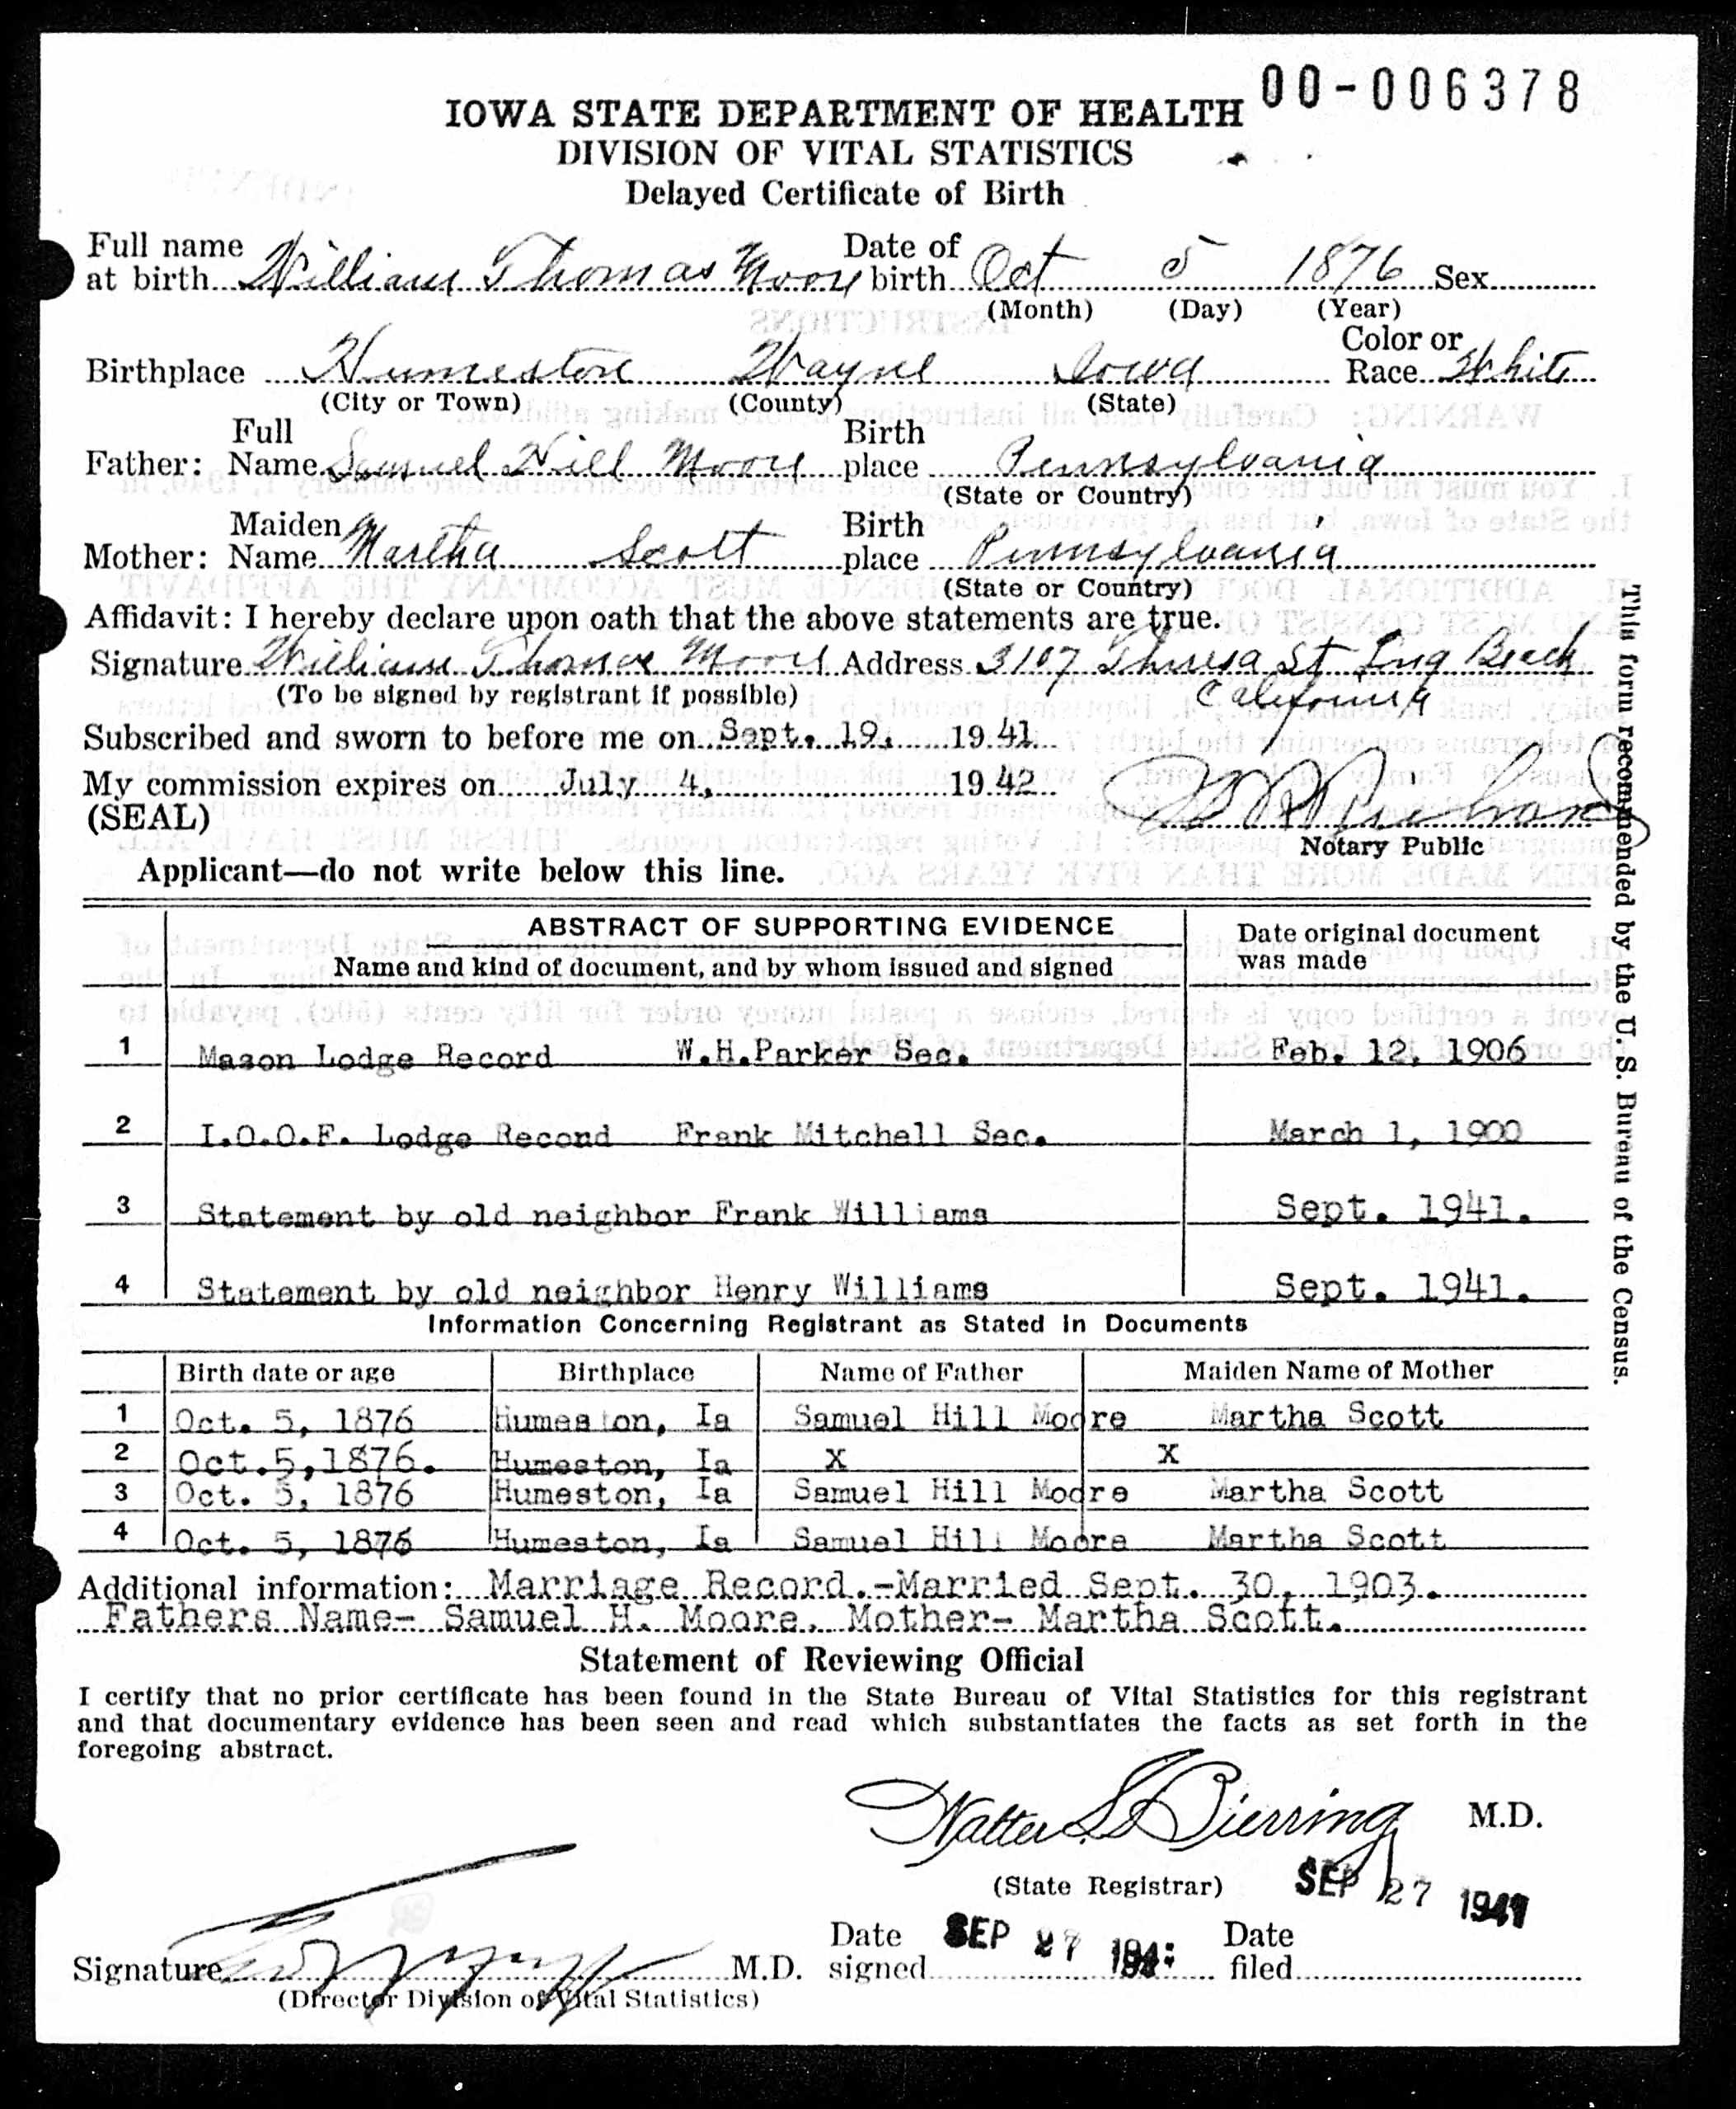 00-006378
IOWA STATE DEPARTMENT OF HEALTH
DIVISION OF VITAL STATISTICS
Delayed Certificate of Birth
Full name at birth William Thomas Moore Date of birth Oct 5 1876 Sex
(Month) (Day) (Year)
Birthplace Humeston Wayne Iowa Color or Race White
(City or Town) (County) (State)
Father: Full Name Samuel Hill Moore Birth place Pennsylvania
(State or Country)
Mother: Maiden Name Martha Scott Birth place Pennsylvania
(State or Country)
Affidavit: I hereby declare upon oath that the above statements are true.
Signature William Thomas Moore Address 3107 Theresa St Long Beach
(To be signed by registrant if possible) California
Subscribed and sworn to before me on Sept. 19, 1941
My commission expires on July 4, 1942
(SEAL)
Notary Public
Applicant—do not write below this line.
ABSTRACT OF SUPPORTING EVIDENCE
Name and kind of document, and by whom issued and signed
Date original document was made
1 Mason Lodge Record W.H.Parker Sec. Feb. 12, 1906
2 I.O.O.F. Lodge Record Frank Mitchell Sec. March 1, 1900
3 Statement by old neighbor Frank Williams Sept. 1941.
4 Statement by old neighbor Henry Williams Sept. 1941.
Information Concerning Registrant as Stated in Documents
Birth date or age Birthplace Name of Father Maiden Name of Mother
1 Oct. 5, 1876 Humeston, Ia Samuel Hill Moore Martha Scott
2 Oct.5,1876. Humeston, Ia X X
3 Oct. 5, 1876 Humeston, Ia Samuel Hill Moore Martha Scott
4 Oct. 5, 1876 Humeston, Ia Samuel Hill Moore Martha Scott
Additional information: Marriage Record.-Married Sept. 30, 1903.
Fathers Name- Samuel H. Moore, Mother- Martha Scott.
Statement of Reviewing Official
I certify that no prior certificate has been found in the State Bureau of Vital Statistics for this registrant
and that documentary evidence has been seen and read which substantiates the facts as set forth in the
foregoing abstract.
Walter L Bierring M.D.
(State Registrar) SEP 27 1941
Signature M.D. Date signed SEP 27 194 Date filed
(Director Division of Vital Statistics)
This form recommended by the U. S. Bureau of the Census.